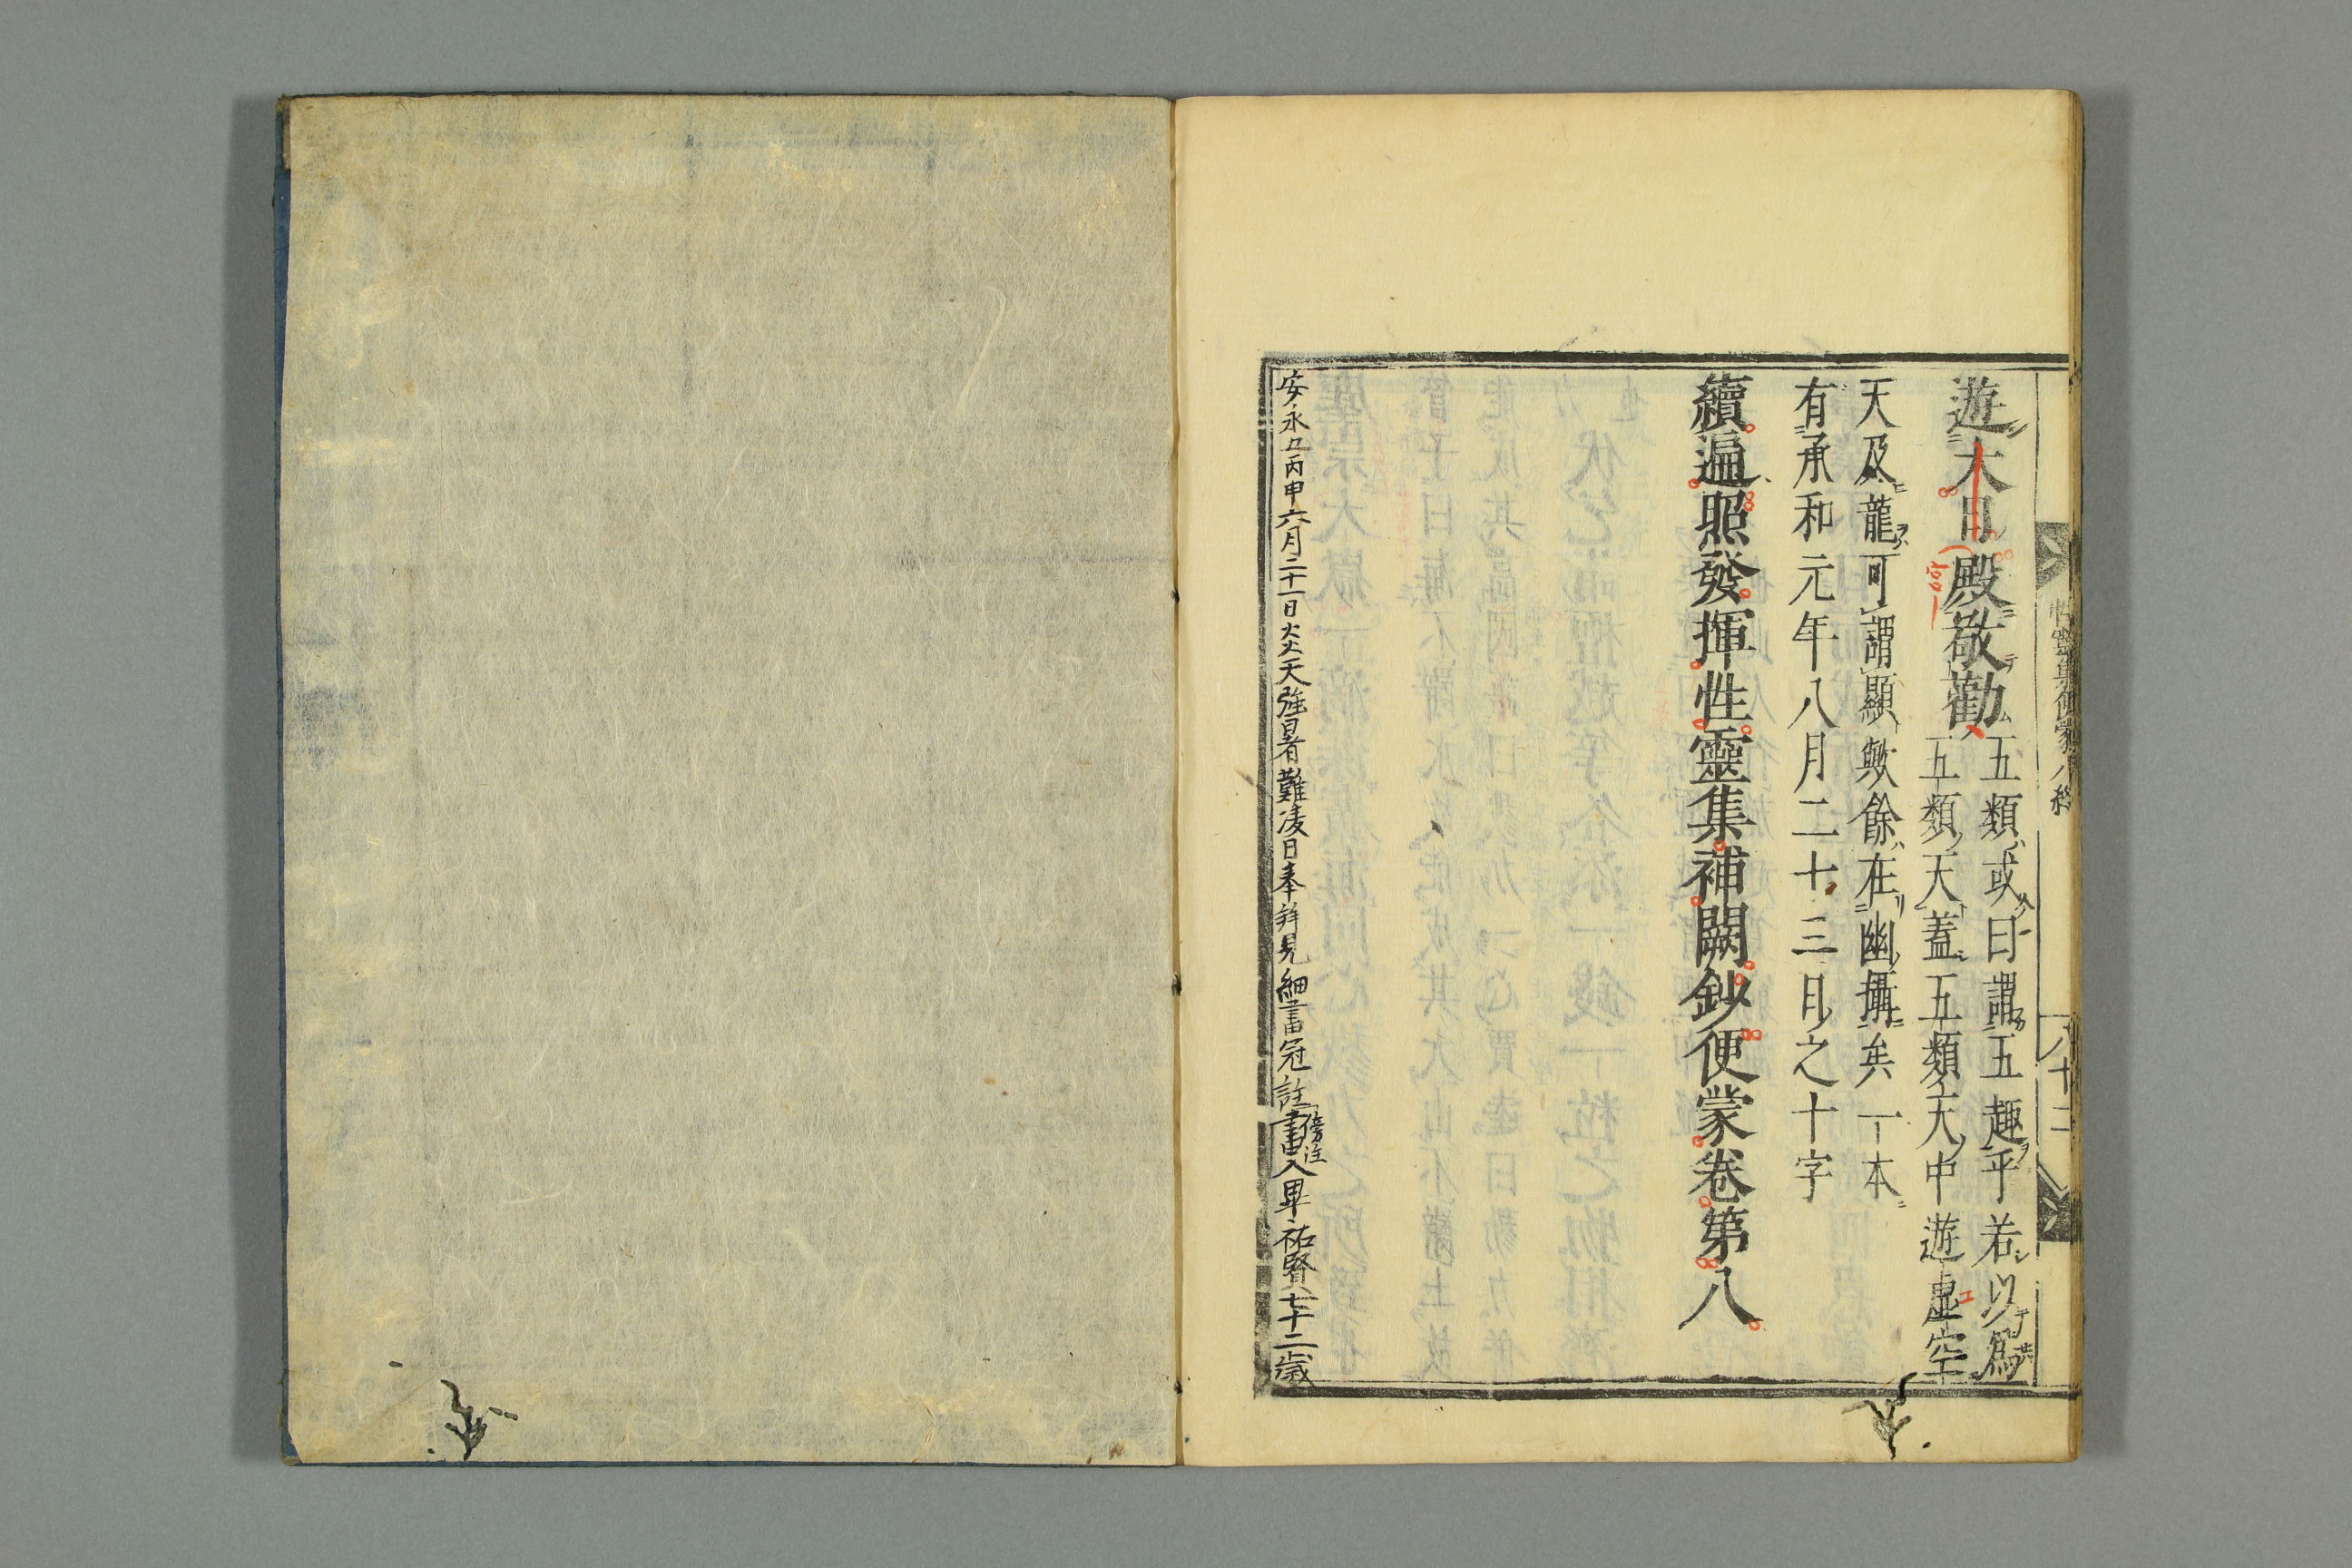 遊大日殿敬勸
五類或曰謂五趣乎若以爲
五類天蓋五類天中遊虛空
天及龍可謂顯歟餘在幽攝矣一本
有承和元年八月二十三日之十字
續遍照發揮性靈集補闕鈔便蒙卷第八
安永五丙申六月二十一日炎天強暑難凌日奉拜見細書冠註書入畢祐賢七十二歳
傍注